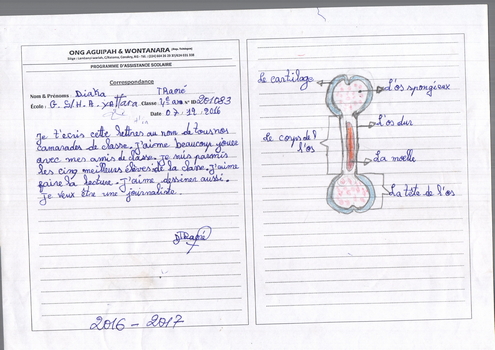 ONG AGUIPAH & WONTANARA
PROGRAMME D'ASSISTANCE SCOLAIRE
Correspondance
Nom & Prénoms : Diaka TRaoré
École : G. S/H. A. Classe : ID: 201083
Date 07.12.2016
Je t'écris cette lettres au nom de tous nos
camarades de classe. J'aime beaucoup jouee
avec mes amis de classe. Je suis parmis
les cinq meilleurs élèves de la classe. J'aime
faire la lecture. J'aime dessiner aussi.
Je veux être une journaliste.
DTRaoré
2016 - 2017
Le cartilage
L'os spongieux
L'os dur
Le corps de l'os
La moelle
La tête de l'os